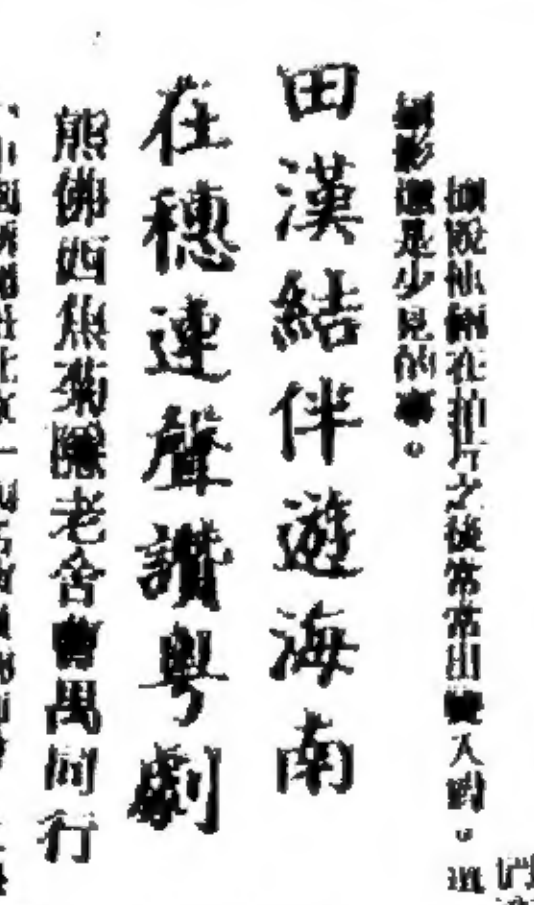 據說他倆在拍片之後常常出雙入對。這
還是少見的事。
田漢結伴遊海南
在穗連聲讚粵劇
熊佛西焦菊隱老舍曹禺同行